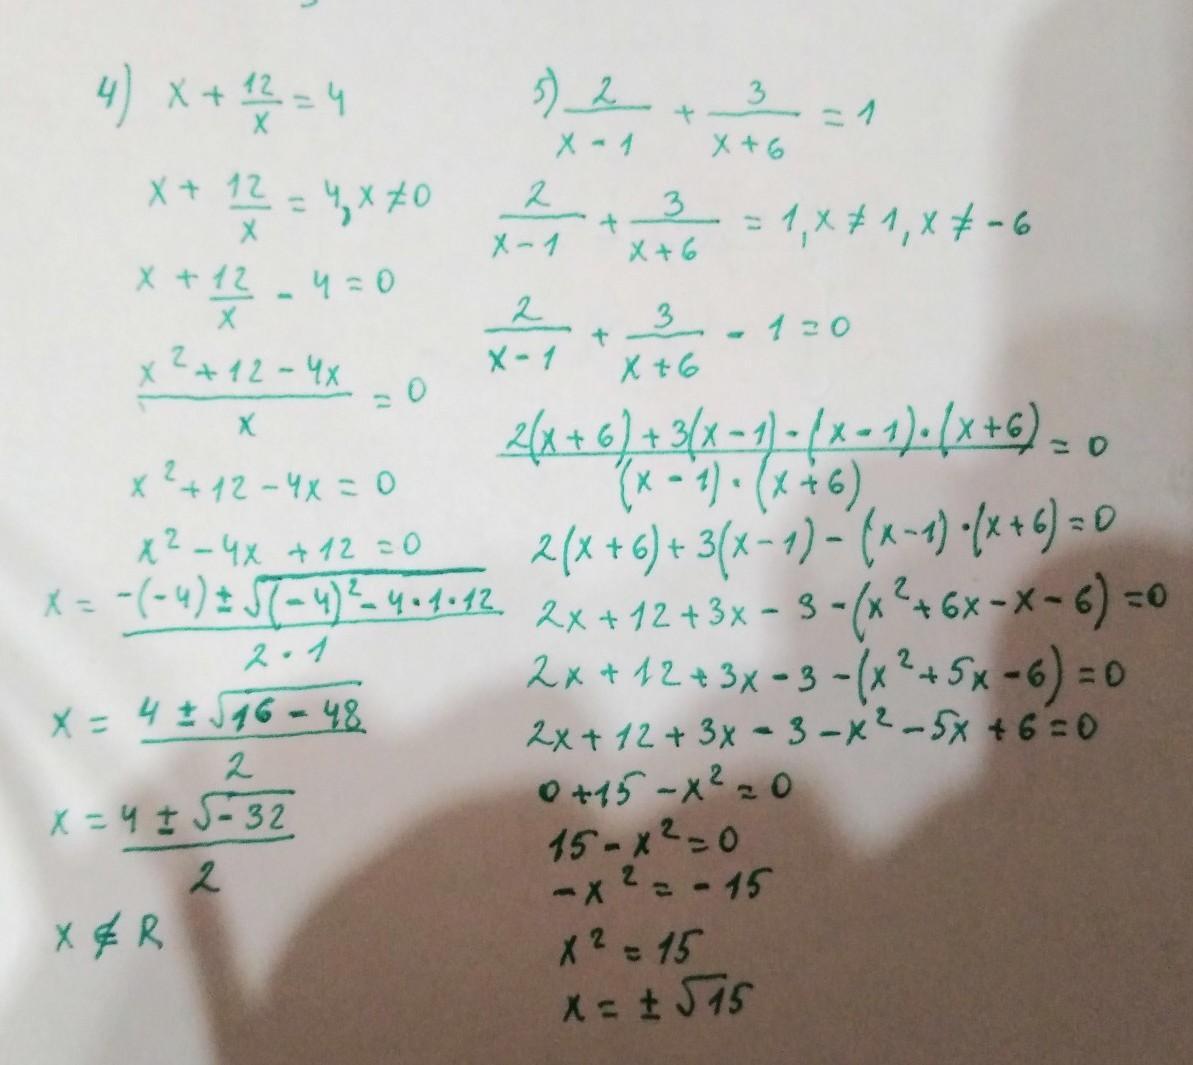 4) x + 12/x = 4
x + 12/x = 4, x ≠ 0
x + 12/x - 4 = 0
(x² + 12 - 4x)/x = 0
x² + 12 - 4x = 0
x² - 4x + 12 = 0
x = (-(-4) ± √((-4)² - 4·1·12))/(2·1)
x = (4 ± √(16 - 48))/2
x = (4 ± √(-32))/2
x ∉ R
5) 2/(x - 1) + 3/(x + 6) = 1
2/(x - 1) + 3/(x + 6) = 1, x ≠ 1, x ≠ -6
2/(x - 1) + 3/(x + 6) - 1 = 0
(2(x + 6) + 3(x - 1) - (x - 1)·(x + 6))/((x - 1)·(x + 6)) = 0
2(x + 6) + 3(x - 1) - (x - 1)·(x + 6) = 0
2x + 12 + 3x - 3 - (x² + 6x - x - 6) = 0
2x + 12 + 3x - 3 - (x² + 5x - 6) = 0
2x + 12 + 3x - 3 - x² - 5x + 6 = 0
0 + 15 - x² = 0
15 - x² = 0
-x² = -15
x² = 15
x = ±√15